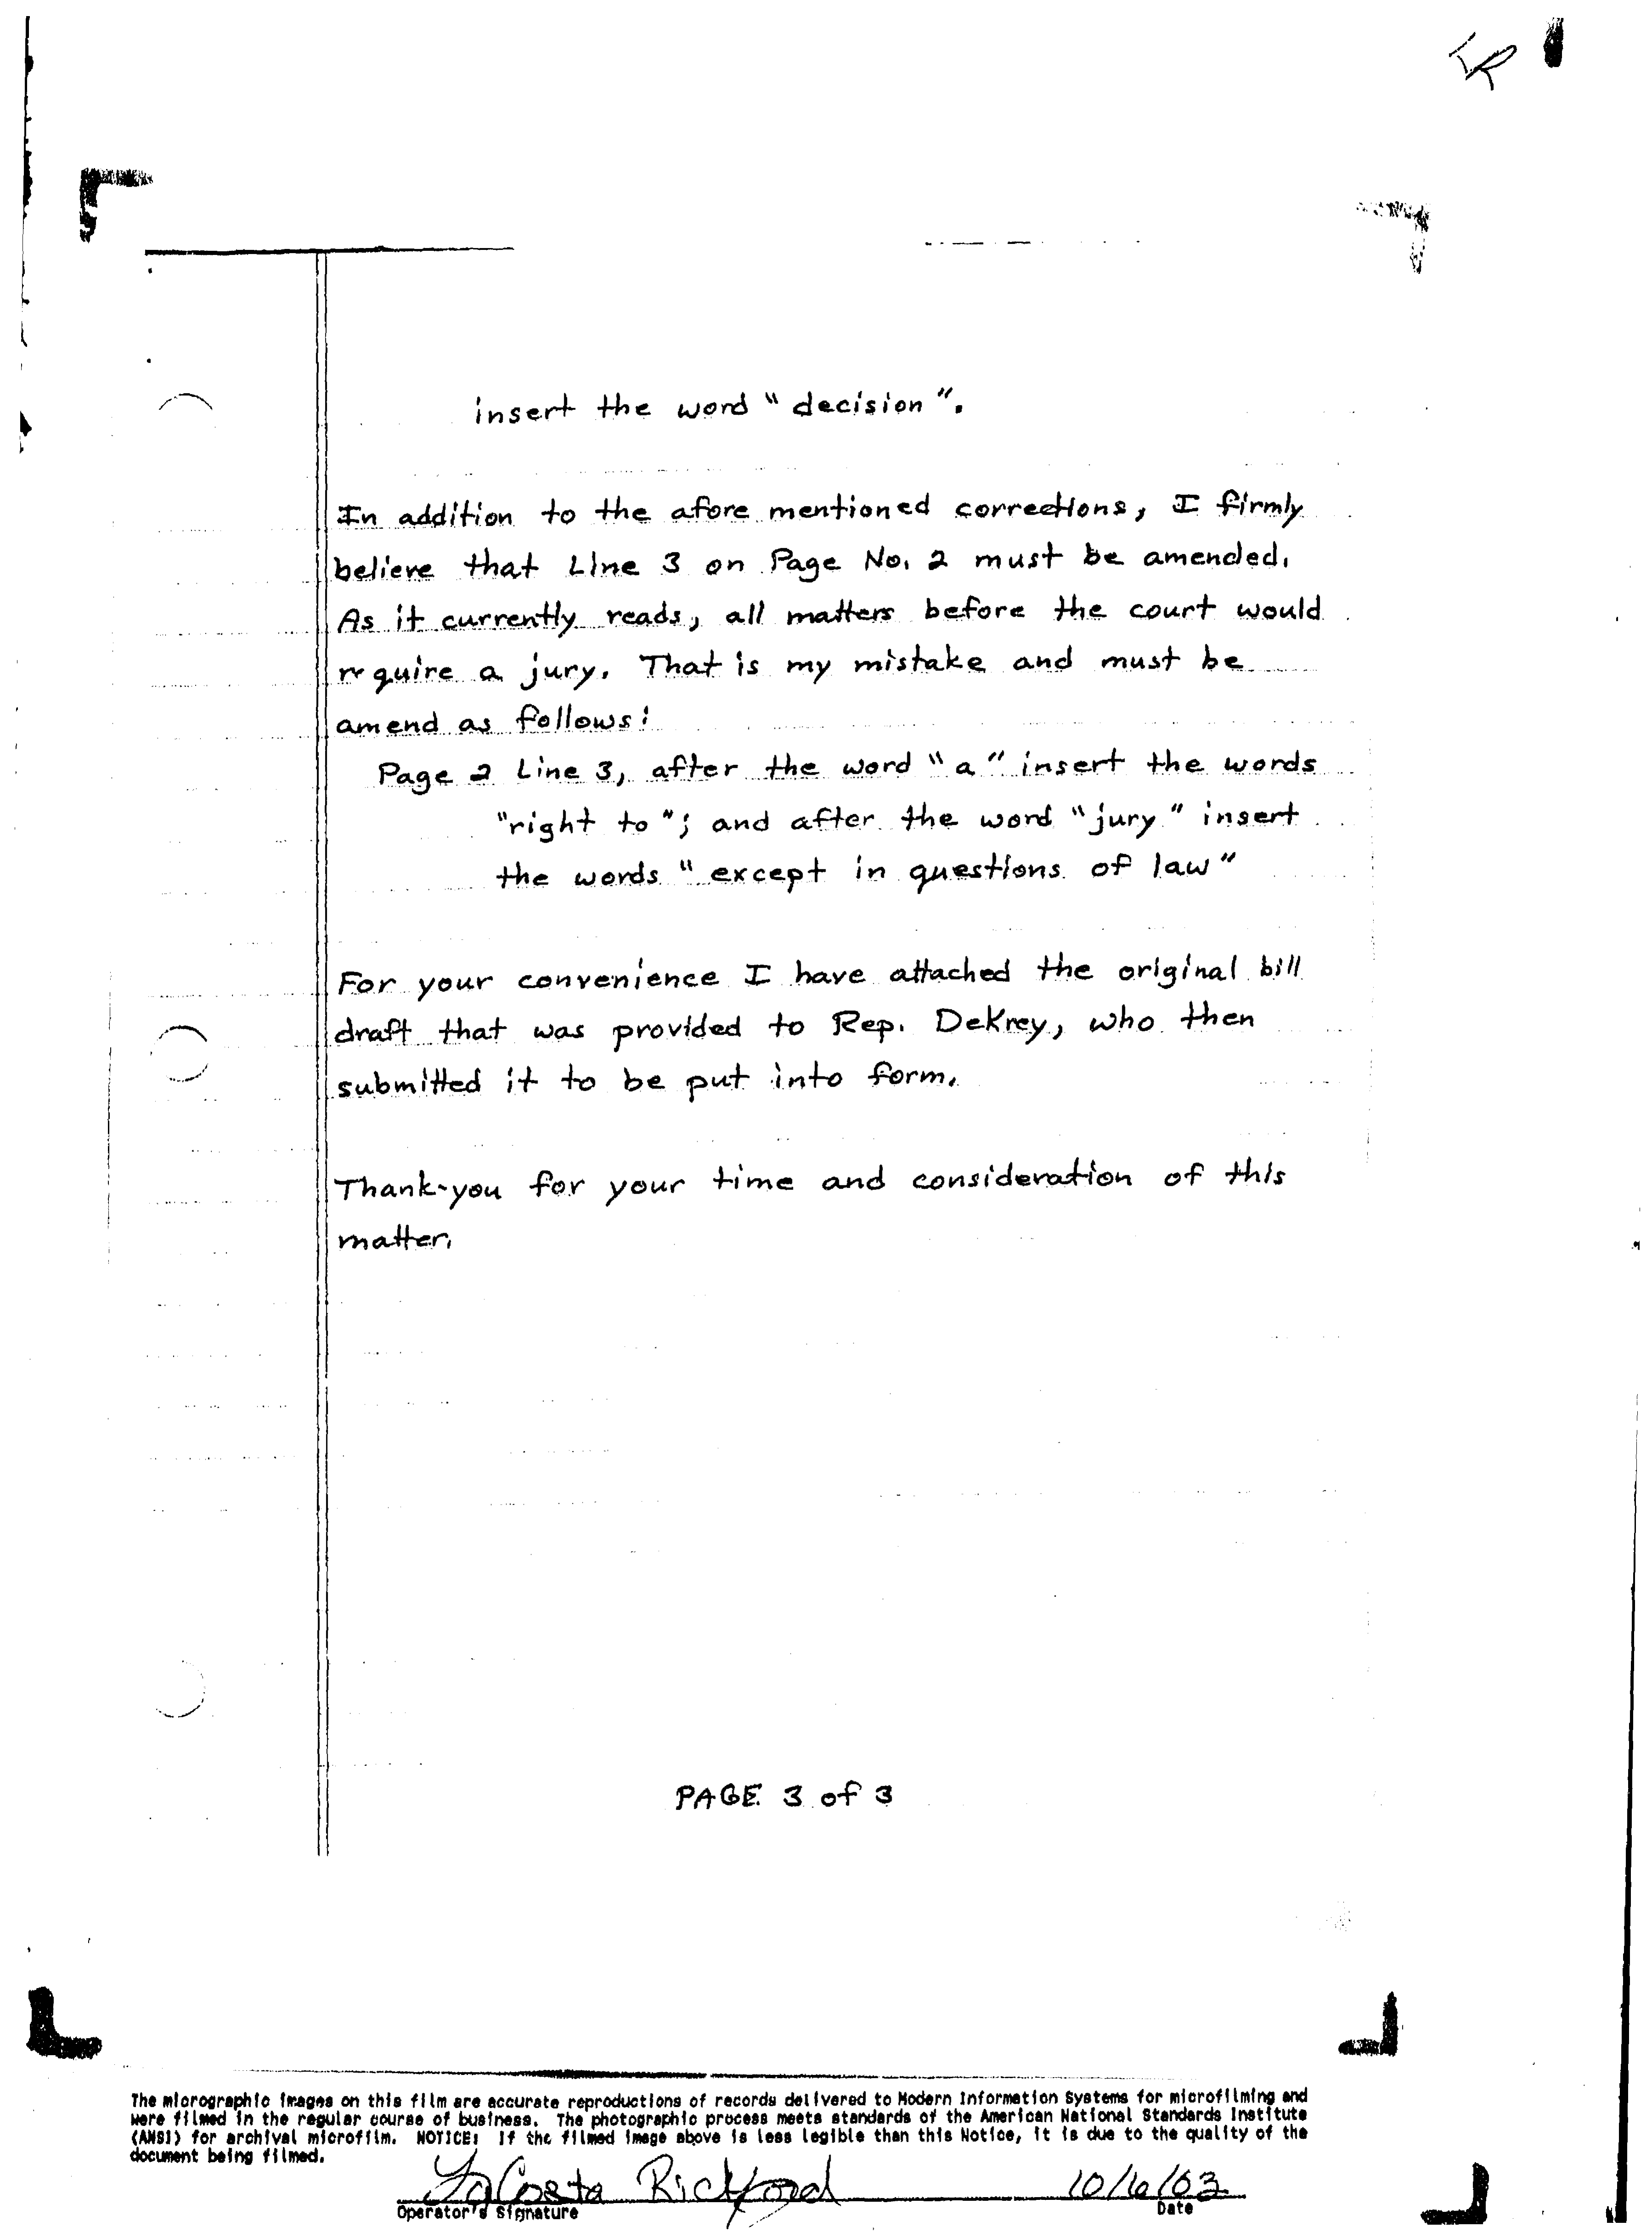 insert the word "decision".
In addition to the afore mentioned corrections, I firmly
believe that Line 3 on Page No. 2 must be amended.
As it currently reads, all matters before the court would
require a jury. That is my mistake and must be
amend as follows:
Page 2 Line 3, after the word "a" insert the words
"right to"; and after the word "jury" insert
the words "except in questions of law"
For your convenience I have attached the original bill
draft that was provided to Rep. DeKrey, who then
submitted it to be put into form.
Thank-you for your time and consideration of this
matter.
PAGE 3 of 3
The micrographic images on this film are accurate reproductions of records delivered to Modern Information Systems for microfilming and
were filmed in the regular course of business. The photographic process meets standards of the American National Standards Institute
(ANSI) for archival microfilm. NOTICE: If the filmed image above is less legible than this Notice, it is due to the quality of the
document being filmed.
LaCosta Rickford 10/6/03
Operator's Signature Date